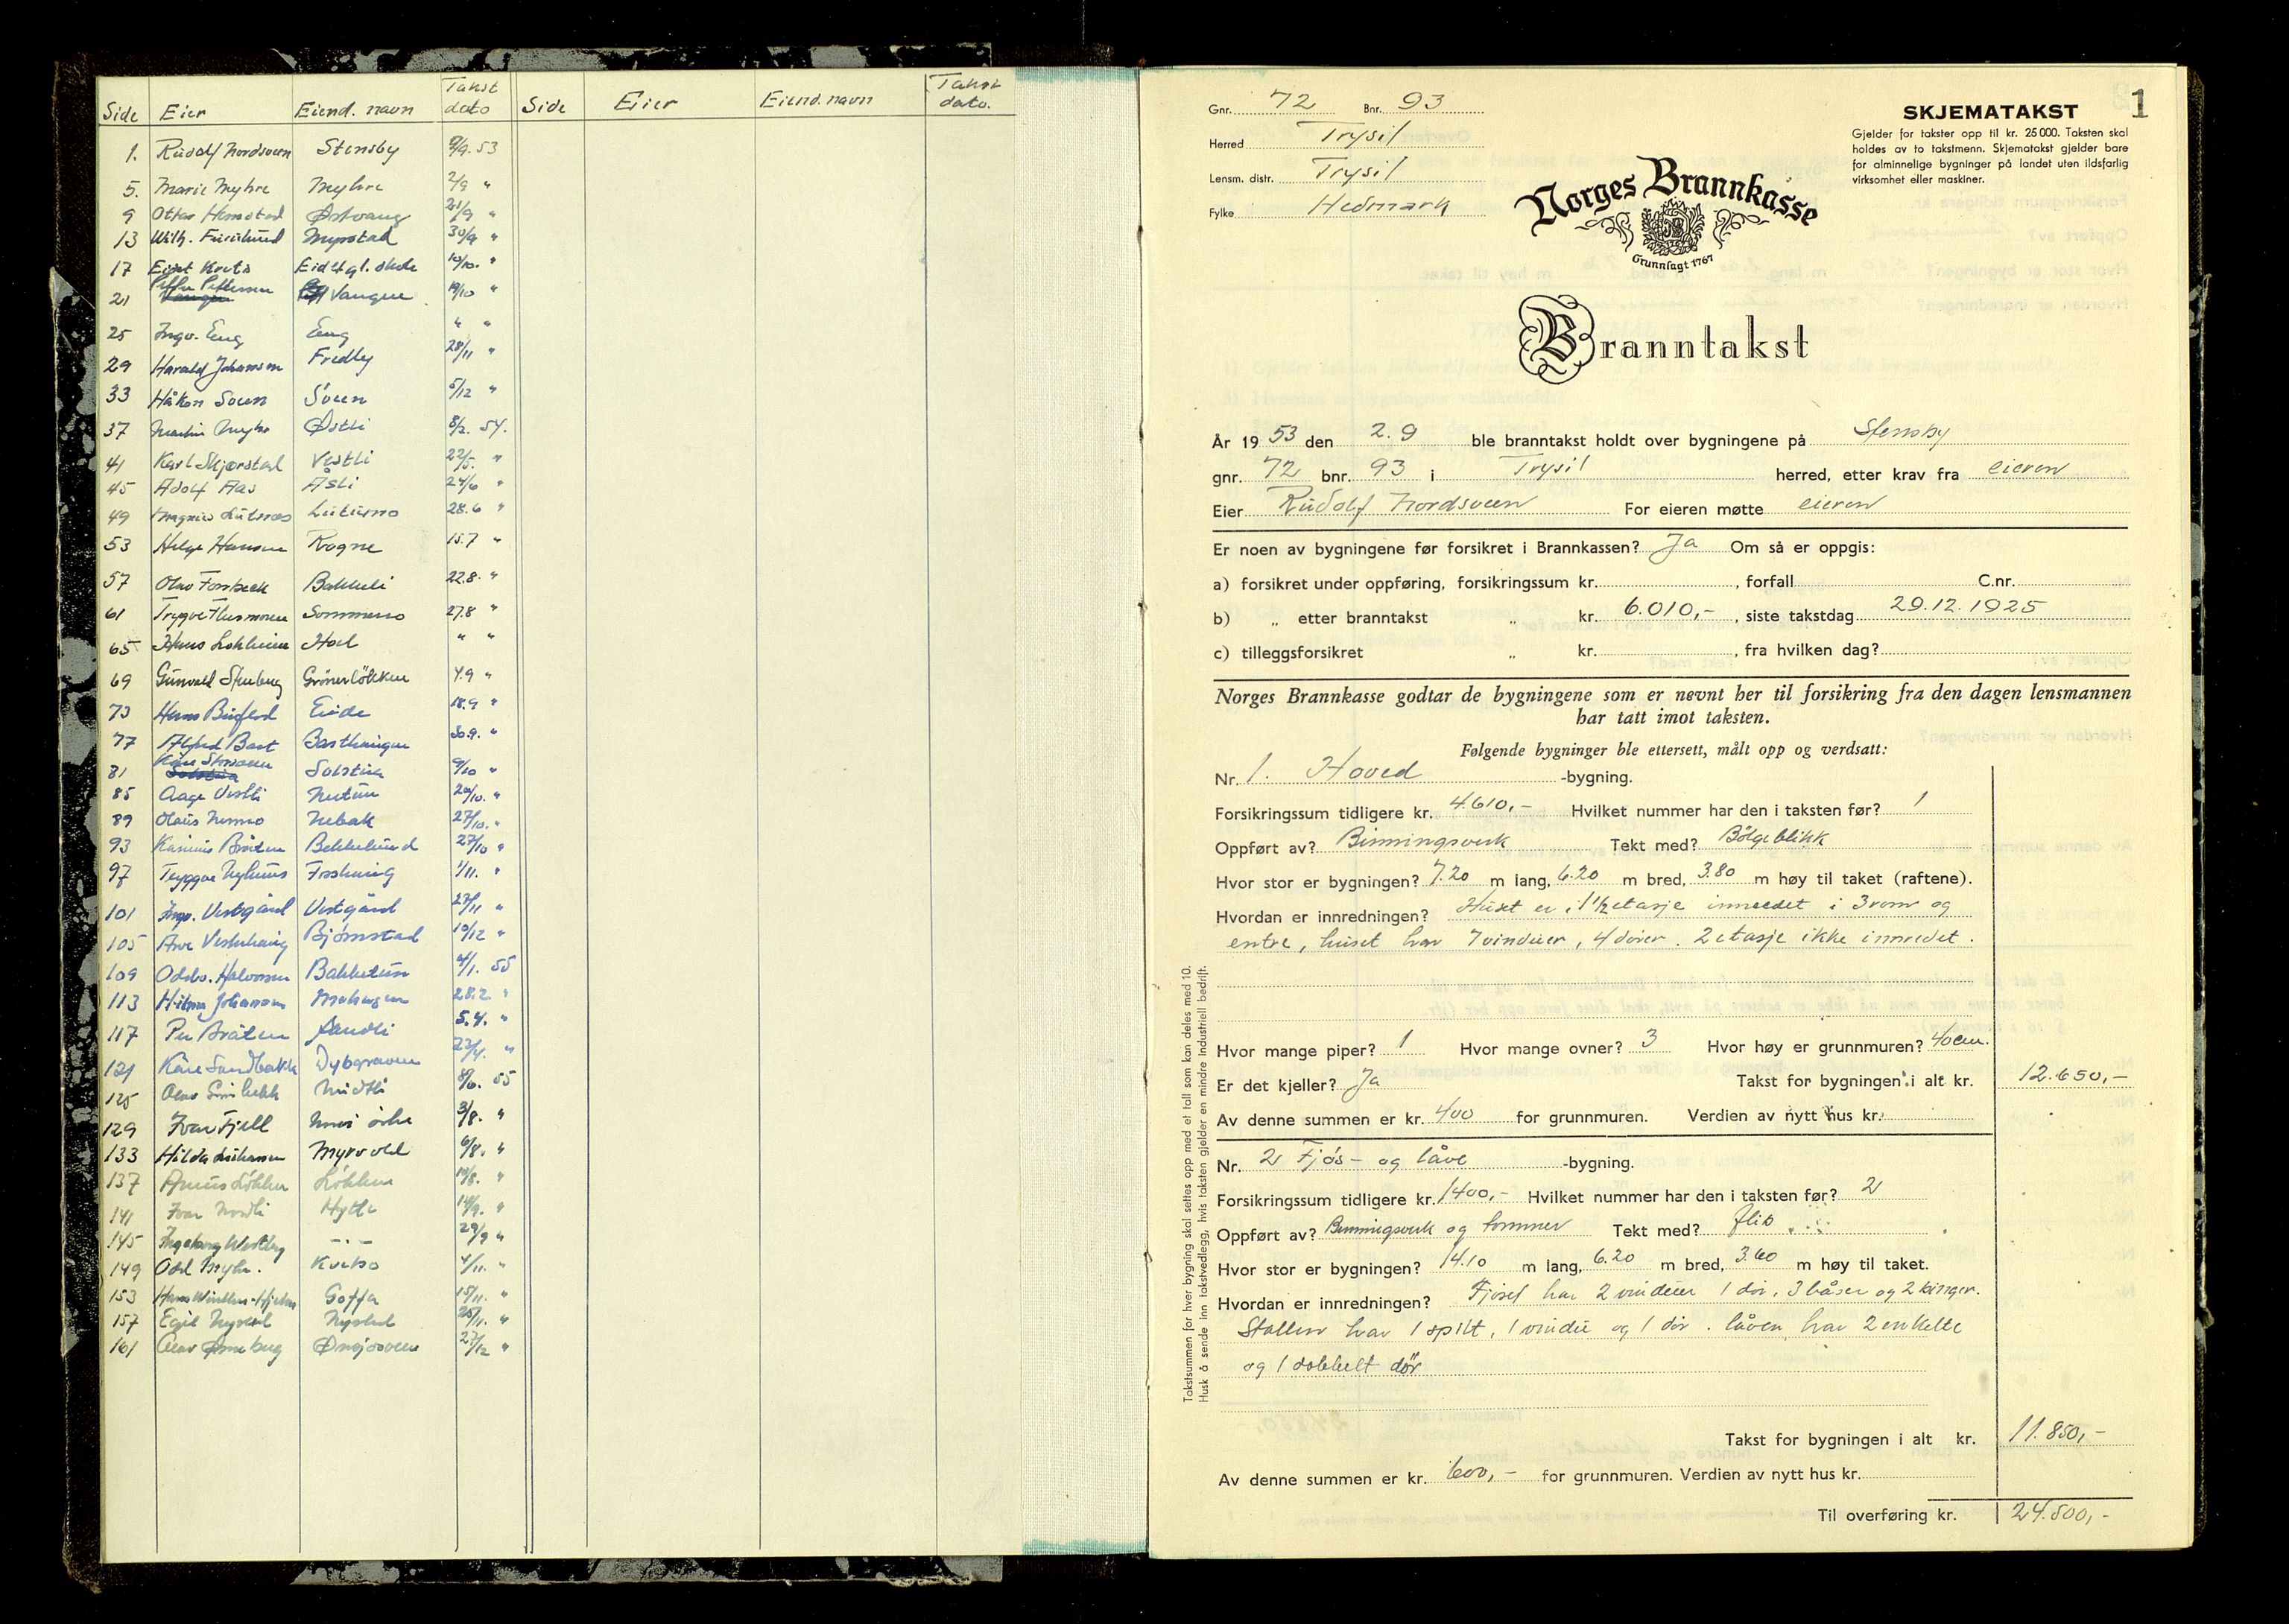 Side Eier Eiend. navn Takst dato Side Eier Eiend. navn Takst dato.
1. Rudolf Nordsveen Stensby 2/9. 53
5. Marie Myhre Myhre 2/9 "
9 Ottar Østvang 21/9 "
13 Wilh. Myrstad 30/9 "
17 Eidet Krets Eidet gl. skole 10/10. "
21 Petter Pettersen Vangen 19/10 "
25 Ingv. Eng Eng " "
29 Harald Johansen Fredly 28/11 "
33 Håkon Sveen Sveen 5/12 "
37 Martin Myhre Østli 8/2. 54.
41 Karl Skjærstad Vestli 22/5. "
45 Adolf Aas Åsli 24/6 "
49 Magnus Lutnæs Lutumo 28.6 "
53 Helge Hansen Rogne 15.7 "
57 Olav Forsbeck Bakkeli 22.8. "
61 Trygve Sommero 27.8 "
65 Hans Hoel " "
69 Gunvald Stenberg Grönerlökken 4.9 "
73 Hans Eide 18.9 "
77 Alfred Bast Basthaugen 30.9. "
81 Kåre Solstua 9/10 "
85 Aage Vestli Nestun 20/10. "
89 Olaus Nymo Nebak 27/10. "
93 Kasinus Bråten Bekkelund 27/10 "
97 Tryggve Nyhuus 1/11. "
101 Ingv. Vestgård Vestgård 27/11 "
105 Arve Vesterhaug Bjørnstad 10/12 "
109 Oddv. Halvorsen Bakketun 4/1. 55
113 Hilmar Johansen 28.2 "
117 Per Bråten Sandli 5.4. "
121 Kåre Sandbakk Dybgraven 23/4. "
125 Olav Grinbekk Midtli 8/6. 55
129 Ivar Fjell 3/8. "
133 Hilda Myrvold 6/8. "
137 Løkken Løkken 10/8. "
141 Ivar Nordli Hytte 14/9. "
145 Ingeborg Westberg - . - 29/9 "
149 Odd Myhre. Kvitso 4/11. "
153 Hans Winther-Hjelm Goffa 15/11. "
157 Egil Nystad Nystad 25/11. "
161 Olav Ørneberg 27/12 "
Gnr. 72 Bnr. 93
Herred Trysil
Lensm. distr. Trysil
Fylke Hedmark
SKJEMATAKST 1
Gjelder for takster opp til kr. 25 000. Taksten skal
holdes av to takstmenn. Skjematakst gjelder bare
for alminnelige bygninger på landet uten ildsfarlig
virksomhet eller maskiner.
Norges Brannkasse
Grunnlagt 1767
Branntakst
År 19 53 den 2. 9 ble branntakst holdt over bygningene på Stensby
gnr. 72 bnr. 93 i Trysil herred, etter krav fra eieren
Eier Rudolf Nordsveen For eieren møtte eieren
Er noen av bygningene før forsikret i Brannkassen? Ja Om så er oppgis:
a) forsikret under oppføring, forsikringssum kr. , forfall C.nr.
b) „ etter branntakst „ kr. 6.010,- , siste takstdag 29.12.1925
c) tilleggsforsikret „ kr. , fra hvilken dag?
Norges Brannkasse godtar de bygningene som er nevnt her til forsikring fra den dagen lensmannen
har tatt imot taksten.
Følgende bygninger ble ettersett, målt opp og verdsatt:
Nr. 1. Hoved -bygning.
Forsikringssum tidligere kr. 4.610,- Hvilket nummer har den i taksten før? 1
Oppført av? Binningsverk Tekt med? Bølgeblikk
Hvor stor er bygningen? 7.20 m lang, 6.20 m bred, 3.80 m høy til taket (raftene).
Hvordan er innredningen? Huset er i 1½ etasje innredet i 3 rom og
entre, huset har 7 vinduer, 4 dører. 2 etasje ikke innredet.
Hvor mange piper? 1 Hvor mange ovner? 3 Hvor høy er grunnmuren? 40 cm.
Er det kjeller? Ja Takst for bygningen i alt kr. 12.650,-
Av denne summen er kr. 400 for grunnmuren. Verdien av nytt hus kr.
Nr. 2 Fjös- og låve -bygning.
Forsikringssum tidligere kr. 1400,- Hvilket nummer har den i taksten før? 2
Oppført av? Binningsverk og tømmer Tekt med? flis
Hvor stor er bygningen? 14.10 m lang, 6.20 m bred, 3.60 m høy til taket.
Hvordan er innredningen? Fjöset har 2 vinduer 1 dör, 3 båser og 2 binger.
Stallen har 1 spilt, 1 vindu og 1 dör. låven har 2 enkelte
og 1 dobbelt dör
Takst for bygningen i alt kr. 11.850,-
Av denne summen er kr. 600,- for grunnmuren. Verdien av nytt hus kr.
Til overføring kr. 24.500,-
Takstsummen for hver bygning skal settes opp med et tall som kan deles med 10.
Husk å sende inn takstvedlegg, hvis taksten gjelder en mindre industriell bedrift.